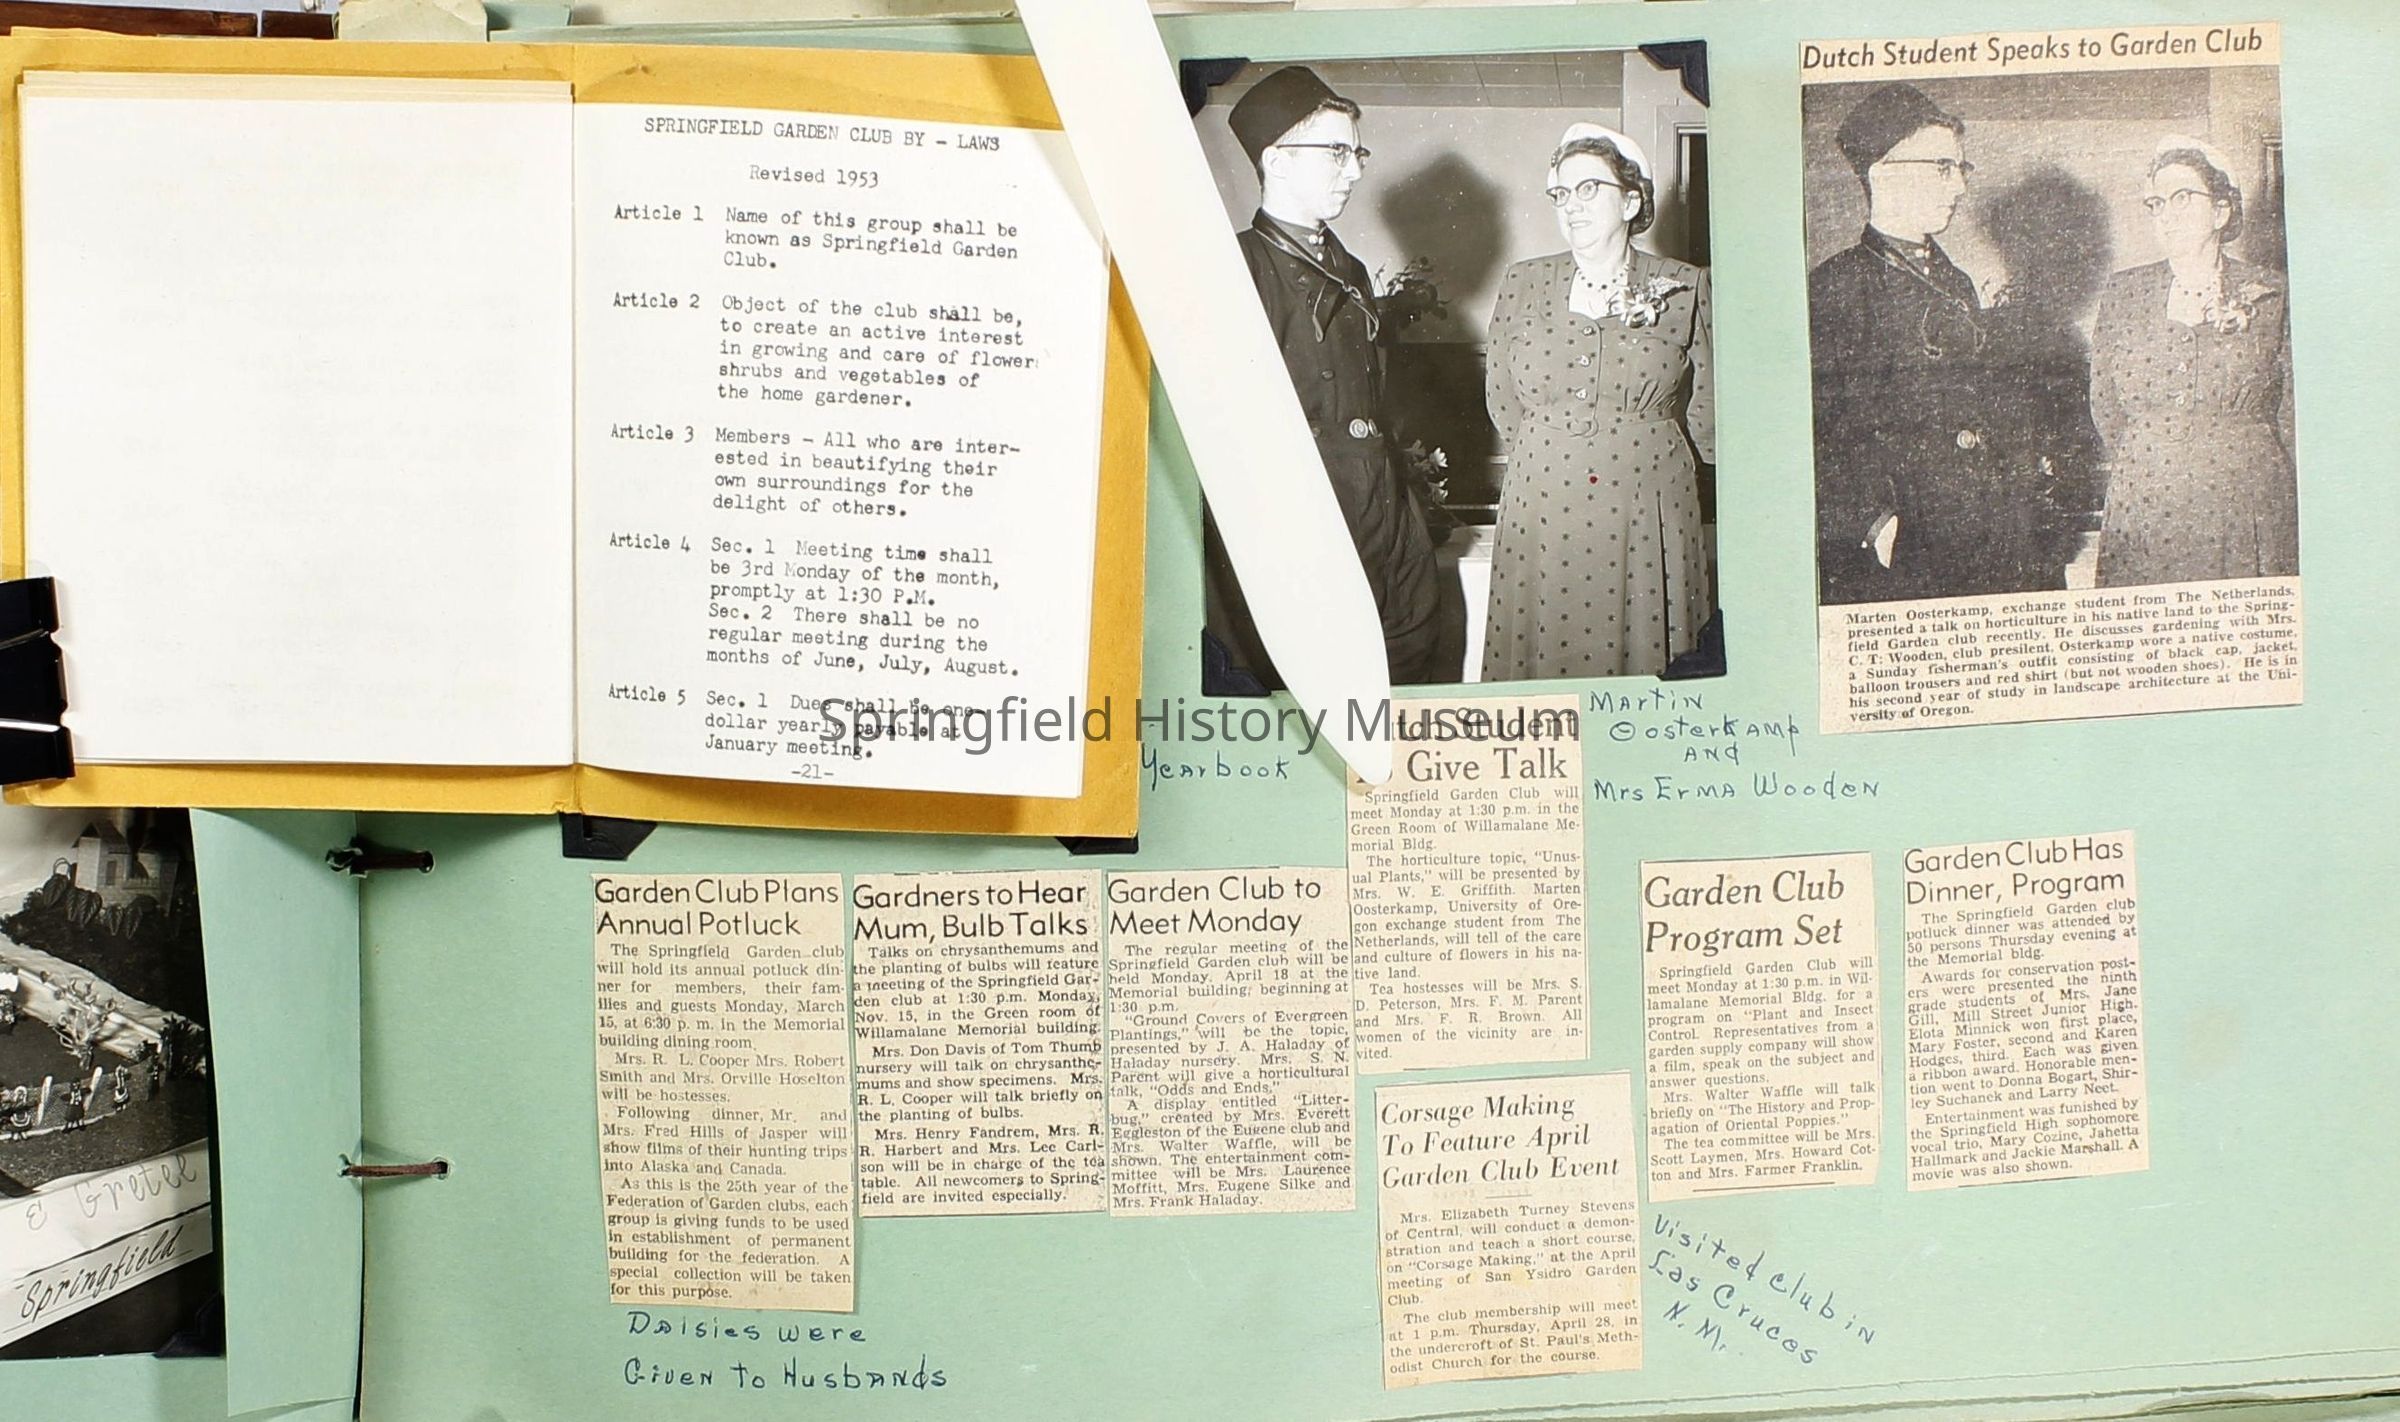 SPRINGFIELD GARDEN CLUB BY - LAWS
Revised 1953
Article 1 Name of this group shall be
known as Springfield Garden
Club.
Article 2 Object of the club shall be,
to create an active interest
in growing and care of flower
shrubs and vegetables of
the home gardener.
Article 3 Members - All who are inter-
ested in beautifying their
own surroundings for the
delight of others.
Article 4 Sec. 1 Meeting time shall
be 3rd Monday of the month,
promptly at 1:30 P.M.
Sec. 2 There shall be no
regular meeting during the
months of June, July, August.
Article 5 Sec. 1 Dues shall be one
dollar yearly payable at
January meeting.
-21-
Yearbook
Dutch Student Speaks to Garden Club
Marten Oosterkamp, exchange student from The Netherlands,
presented a talk on horticulture in his native land to the Spring-
field Garden club recently. He discusses gardening with Mrs.
C. T. Wooden, club presilent. Osterkamp wore a native costume,
a Sunday fisherman's outfit consisting of black cap, jacket,
balloon trousers and red shirt (but not wooden shoes). He is in
his second year of study in landscape architecture at the Uni-
versity of Oregon.
Martin
Oosterkamp
and
Mrs Erma Wooden
Springfield History Museum
tch Student
Give Talk
Springfield Garden Club will
meet Monday at 1:30 p.m. in the
Green Room of Willamalane Me-
morial Bldg.
The horticulture topic, "Unus-
ual Plants," will be presented by
Mrs. W. E. Griffith. Marten
Oosterkamp, University of Ore-
gon exchange student from The
Netherlands, will tell of the care
and culture of flowers in his na-
tive land.
Tea hostesses will be Mrs. S.
D. Peterson, Mrs. F. M. Parent
and Mrs. F. R. Brown. All
women of the vicinity are in-
vited.
Garden Club Plans
Annual Potluck
The Springfield Garden club
will hold its annual potluck din-
ner for members, their fam-
ilies and guests Monday, March
15, at 6:30 p. m. in the Memorial
building dining room.
Mrs. R. L. Cooper Mrs. Robert
Smith and Mrs. Orville Hoselton
will be hostesses.
Following dinner, Mr. and
Mrs. Fred Hills of Jasper will
show films of their hunting trips
into Alaska and Canada.
As this is the 25th year of the
Federation of Garden clubs, each
group is giving funds to be used
in establishment of permanent
building for the federation. A
special collection will be taken
for this purpose.
Daisies were
Given to Husbands
Gardners to Hear
Mum, Bulb Talks
Talks on chrysanthemums and
the planting of bulbs will feature
a meeting of the Springfield Gar-
den club at 1:30 p.m. Monday,
Nov. 15, in the Green room of
Willamalane Memorial building.
Mrs. Don Davis of Tom Thumb
nursery will talk on chrysanthe-
mums and show specimens. Mrs.
R. L. Cooper will talk briefly on
the planting of bulbs.
Mrs. Henry Fandrem, Mrs. R.
R. Harbert and Mrs. Lee Carl-
son will be in charge of the tea
table. All newcomers to Spring-
field are invited especially.
Garden Club to
Meet Monday
The regular meeting of the
Springfield Garden club will be
held Monday, April 18 at the
Memorial building, beginning at
1:30 p.m.
"Ground Covers of Evergreen
Plantings," will be the topic,
presented by J. A. Haladay of
Haladay nursery. Mrs. S. N.
Parent will give a horticultural
talk, "Odds and Ends."
A display entitled "Litter-
bug," created by Mrs. Everett
Eggleston of the Eugene club and
Mrs. Walter Waffle, will be
shown. The entertainment com-
mittee will be Mrs. Laurence
Moffitt, Mrs. Eugene Silke and
Mrs. Frank Haladay.
Corsage Making
To Feature April
Garden Club Event
Mrs. Elizabeth Turney Stevens
of Central, will conduct a demon-
stration and teach a short course,
on "Corsage Making," at the April
meeting of San Ysidro Garden
Club.
The club membership will meet
at 1 p.m. Thursday, April 28, in
the undercroft of St. Paul's Meth-
odist Church for the course.
Visited club in
Las Cruces
N. M.
Garden Club
Program Set
Springfield Garden Club will
meet Monday at 1:30 p.m. in Wil-
lamalane Memorial Bldg. for a
program on "Plant and Insect
Control. Representatives from a
garden supply company will show
a film, speak on the subject and
answer questions.
Mrs. Walter Waffle will talk
briefly on "The History and Prop-
agation of Oriental Poppies."
The tea committee will be Mrs.
Scott Laymen, Mrs. Howard Cot-
ton and Mrs. Farmer Franklin.
Garden Club Has
Dinner, Program
The Springfield Garden club
potluck dinner was attended by
50 persons Thursday evening at
the Memorial bldg.
Awards for conservation post-
ers were presented the ninth
grade students of Mrs. Jane
Gill, Mill Street Junior High.
Elota Minnick won first place,
Mary Foster, second and Karen
Hodges, third. Each was given
a ribbon award. Honorable men-
tion went to Donna Bogart, Shir-
ley Suchanek and Larry Neet.
Entertainment was funished by
the Springfield High sophomore
vocal trio, Mary Cozine, Jahetta
Hallmark and Jackie Marshall. A
movie was also shown.
& Gretel
Springfield